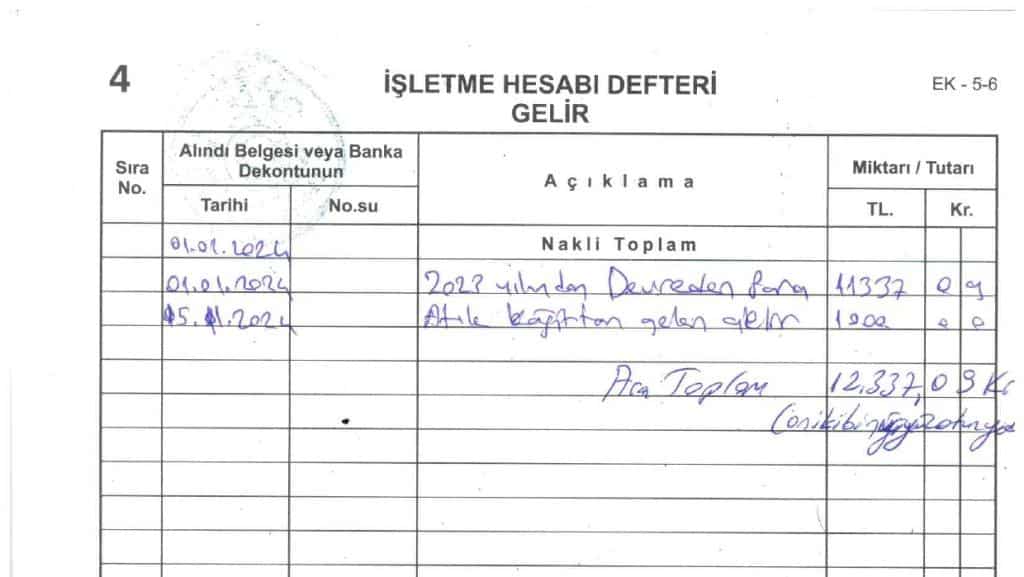 4
İŞLETME HESABI DEFTERİ
GELİR
EK - 5-6
Sıra No.
Alındı Belgesi veya Banka Dekontunun
Tarihi
No.su
Açıklama
Miktarı / Tutarı
TL.
Kr.
01.01.2024 Nakli Toplam
01.01.2024 2023 yılından Devreden Para 11337 0 9
15.11.2024 Atık kağıttan gelen gelir 1000 0 0
Ara Toplam 12.337,09 Kr
(onikibinüçyüzotuzyedi